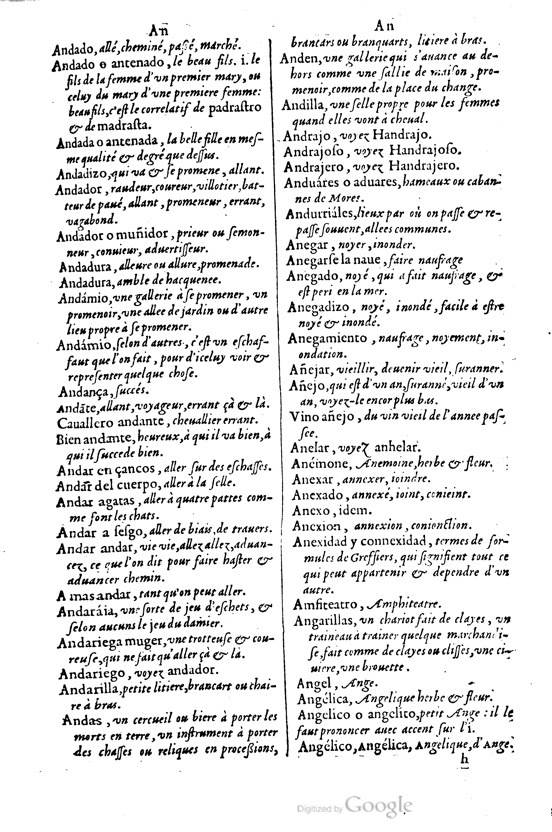 An
Andado, allé, cheminé, passé, marché.
Andado o antenado, le beau fils. i. le
fils de la femme d'vn premier mary, ou
celuy du mary d'vne premiere femme:
beaufils, c'est le correlatif de padrastro
& de madrasta.
Andada o antenada, la belle fille en mes-
me qualité & degré que dessus.
Andadizo, qui va & se promene, allant.
Andador, raudeur, coureur, villotier, bat-
teur de paué, allant, promeneur, errant,
vagabond.
Andador o muñidor, prieur ou semon-
neur, conuieur, aduertisseur.
Andadura, alleure ou allure, promenade.
Andadura, amble de hacquenee.
Andámio, vne gallerie à se promener, vn
promenoir, vne allee de jardin ou d'autre
lieu propre à se promener.
Andámio, selon d'autres, c'est vn eschaf-
faut que l'on fait, pour d'iceluy voir &
representer quelque chose.
Andança, succés.
Andãte, allant, voyageur, errant çà & là.
Cauallero andante, cheuallier errant.
Bien andante, heureux, à qui il va bien, à
qui il succede bien.
Andar en çancos, aller sur des eschasses.
Andar del cuerpo, aller à la selle.
Andar agatas, aller à quatre pattes com-
me font les chats.
Andar a sesgo, aller de biais, de trauers.
Andar andar, vie vie, allez allez, aduan-
cez, ce que l'on dit pour faire haster &
aduancer chemin.
A mas andar, tant qu'on peut aller.
Andaráia, vne sorte de jeu d'eschets, &
selon aucuns le jeu du damier.
Andariega muger, vne trotteuse & cou-
reuse, qui ne fait qu'aller çà & là.
Andariego, voyez andador.
Andarilla, petite litiere, brancart ou chai-
re à bras.
Andas, vn cercueil ou biere à porter les
morts en terre, vn instrument à porter
des chasses ou reliques en processions,
An
brancars ou branquarts, litiere à bras.
Anden, vne gallerie qui s'auance au de-
hors comme vne sallie de maison, pro-
menoir, comme de la place du change.
Andilla, vne selle propre pour les femmes
quand elles vont à cheual.
Andrajo, voyez Handrajo.
Andrajoso, voyez Handrajoso.
Andrajero, voyez Handrajero.
Anduáres o aduares, hameaux ou caban-
nes de Mores.
Andurriáles, lieux par où on passe & re-
passe souuent, allees communes.
Anegar, noyer, inonder.
Anegarse la naue, faire naufrage
Anegado, noyé, qui a fait naufrage, &
est peri en la mer.
Anegadizo, noyé, inondé, facile à estre
noyé & inondé.
Anegamiento, naufrage, noyement, in-
ondation.
Añejar, vieillir, deuenir vieil, suranner.
Añejo, qui est d'vn an, suranné, vieil d'vn
an, voyez-le encor plus bas.
Vino añejo, du vin vieil de l'annee pas-
see.
Anelar, voyez anhelar.
Anémone, Anemoine, herbe & fleur.
Anexar, annexer, ioindre.
Anexado, annexé, ioint, conioint.
Anexo, idem.
Anexion, annexion, conionction.
Anexidad y connexidad, termes de for-
mules de Greffiers, qui signifient tout ce
qui peut appartenir & dependre d'vn
autre.
Amfiteatro, Amphiteatre.
Angarillas, vn chariot fait de clayes, vn
traineau à trainer quelque marchandi-
se, fait comme de clayes ou clisses, vne ci-
uiere, vne brouette.
Angel, Ange.
Angélica, Angelique herbe & fleur.
Angelico o angelito, petit Ange: il le
faut prononcer auec accent sur l'i.
Angélico, Angélica, Angelique, d'Ange.
h
Digitized by Google